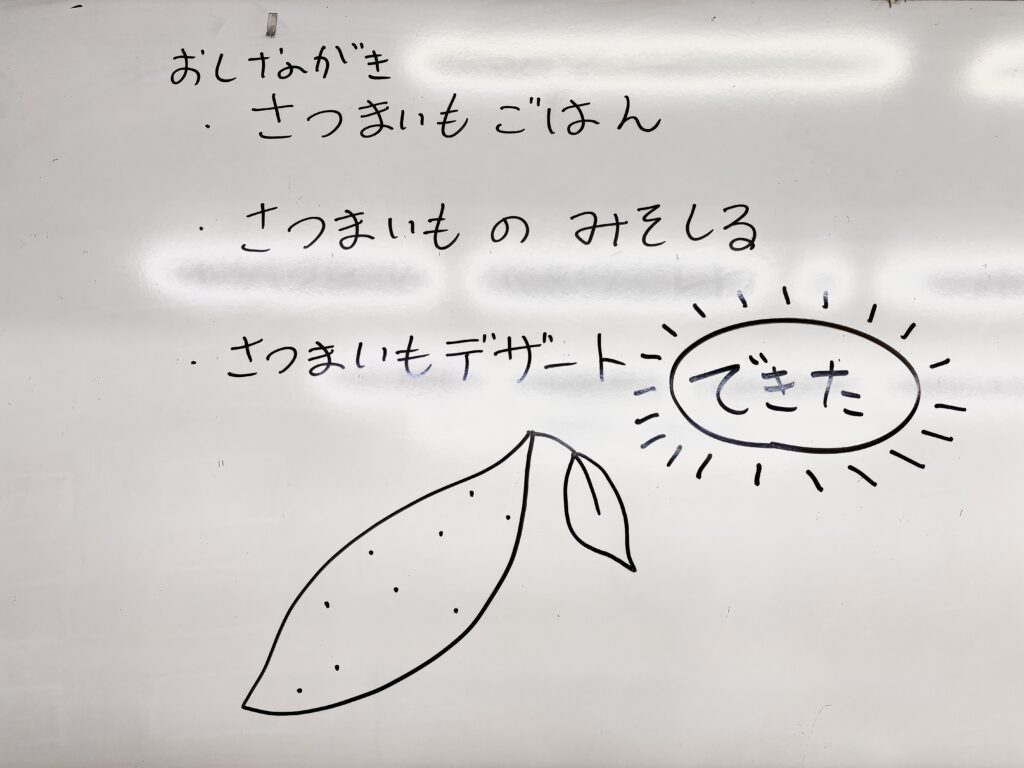 おしながき
・さつまいもごはん
・さつまいものみそしる
・さつまいもデザート
できた